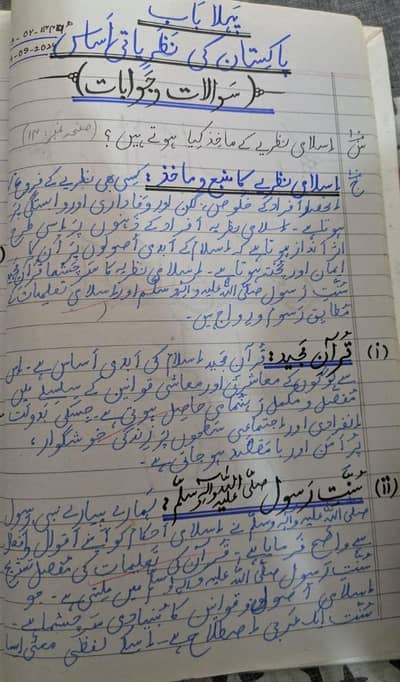 پہلا باب
پاکستان کی نظریاتی اَساس
(سَوالات و جَوابات)
س:۱ اسلامی نظریے کے ماخذ کیا ہوتے ہیں؟ (صفحہ نمبر:۱۳)
ج:۱ اسلامی نظریے کا منبع و ماخذ: کسی بھی نظریے کے فروغ کا
انحصار اَفراد کے خلوص، لگن اور وفاداری اور وابستگی پر
ہوتا ہے۔ اسلامی نظریہ اَفراد کے ذہنوں پر اِس طرح
اثر انداز ہوتا ہے کہ اسلام کے اَبدی اُصولوں پر اُن کا
ایمان اور پختہ ہوتا ہے۔ اسلامی نظریہ کا سرچشمہ قرآن مجید
سُنّتِ رسول صلی اللہ علیہ والہ وسلم اور اسلامی تعلیمات کے
مطابق رسوم و رواج ہیں۔
(i) قُرآن مجید: قُرآن مجید اسلام کی اَبدی اَساس ہے۔ اس
سے لوگوں کے معاشرتی اور معاشی قوانین کے سلسلے میں
مفصل و مکمل رَہنمائی حاصل ہوتی ہے۔ جسکی بدولت
اِنفرادی اور اجتماعی سطحوں پر زندگی خوشگوار،
پُر اَمن اور بامقصد ہو جاتی ہے۔
(ii) سُنّتِ رَسول صلی اللہ علیہ والہ وسلم: ہمارے پیارے نبی رسول
صلی اللہ علیہ والہ وسلم نے اسلامی اَحکام کو اپنے اَقوال و اَفعال
سے واضح فرمایا ہے۔ قرآن کی تعلیمات کی مفصل تشریح
سُنّتِ رسول صلی اللہ علیہ والہ وسلم میں ملتی ہے۔ جو
اسلامی اُصول و قوانین کا بُنیادی سرچشمہ ہے۔
سُنّت ایک عربی اِصطلاح ہے۔ اسکا لفظی معنی ایسا